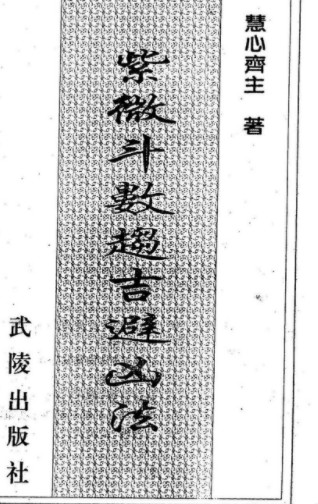 慧心齊主　著
紫微斗數趨吉避凶法
武陵出版社